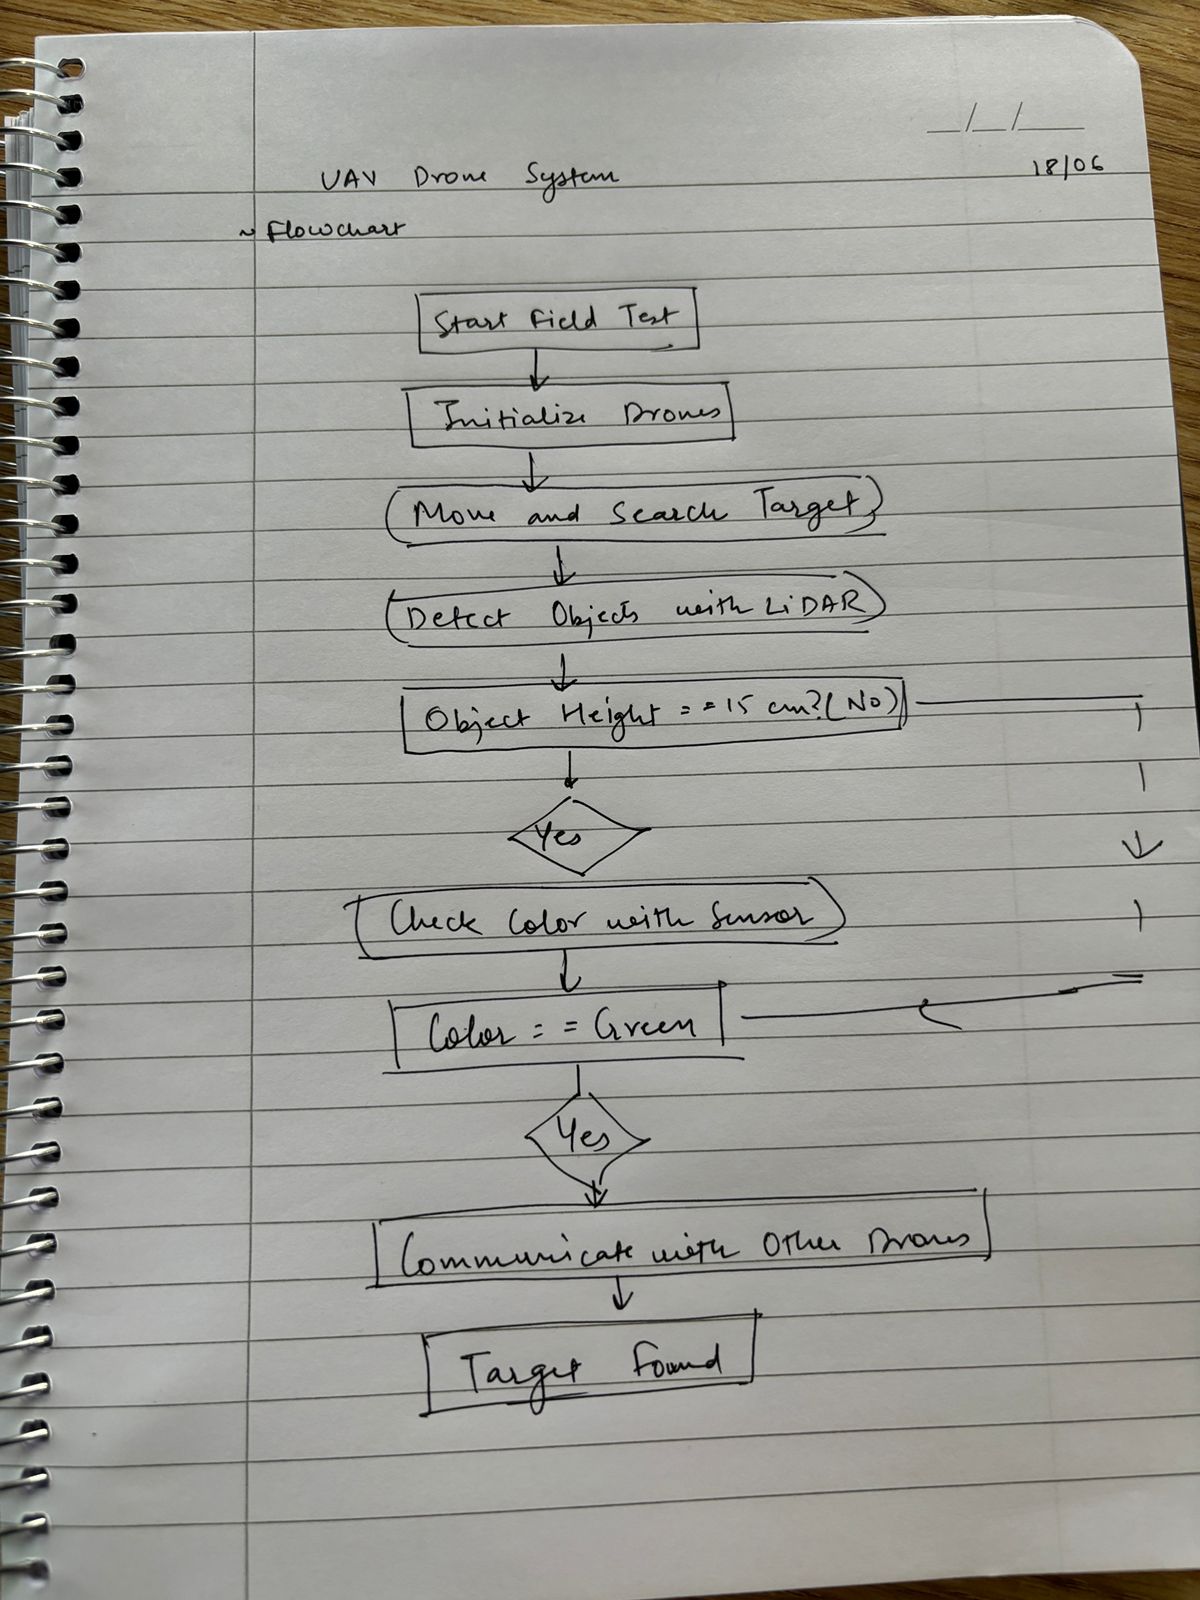 18/06
UAV Drone System
~ Flowchart
Start Field Test
Initialize Drones
Move and Search Target
Detect Objects with LiDAR
Object Height = = 15 cm? (No)
Yes
Check Color with Sensor
Color = = Green
Yes
Communicate with Other Drones
Target Found